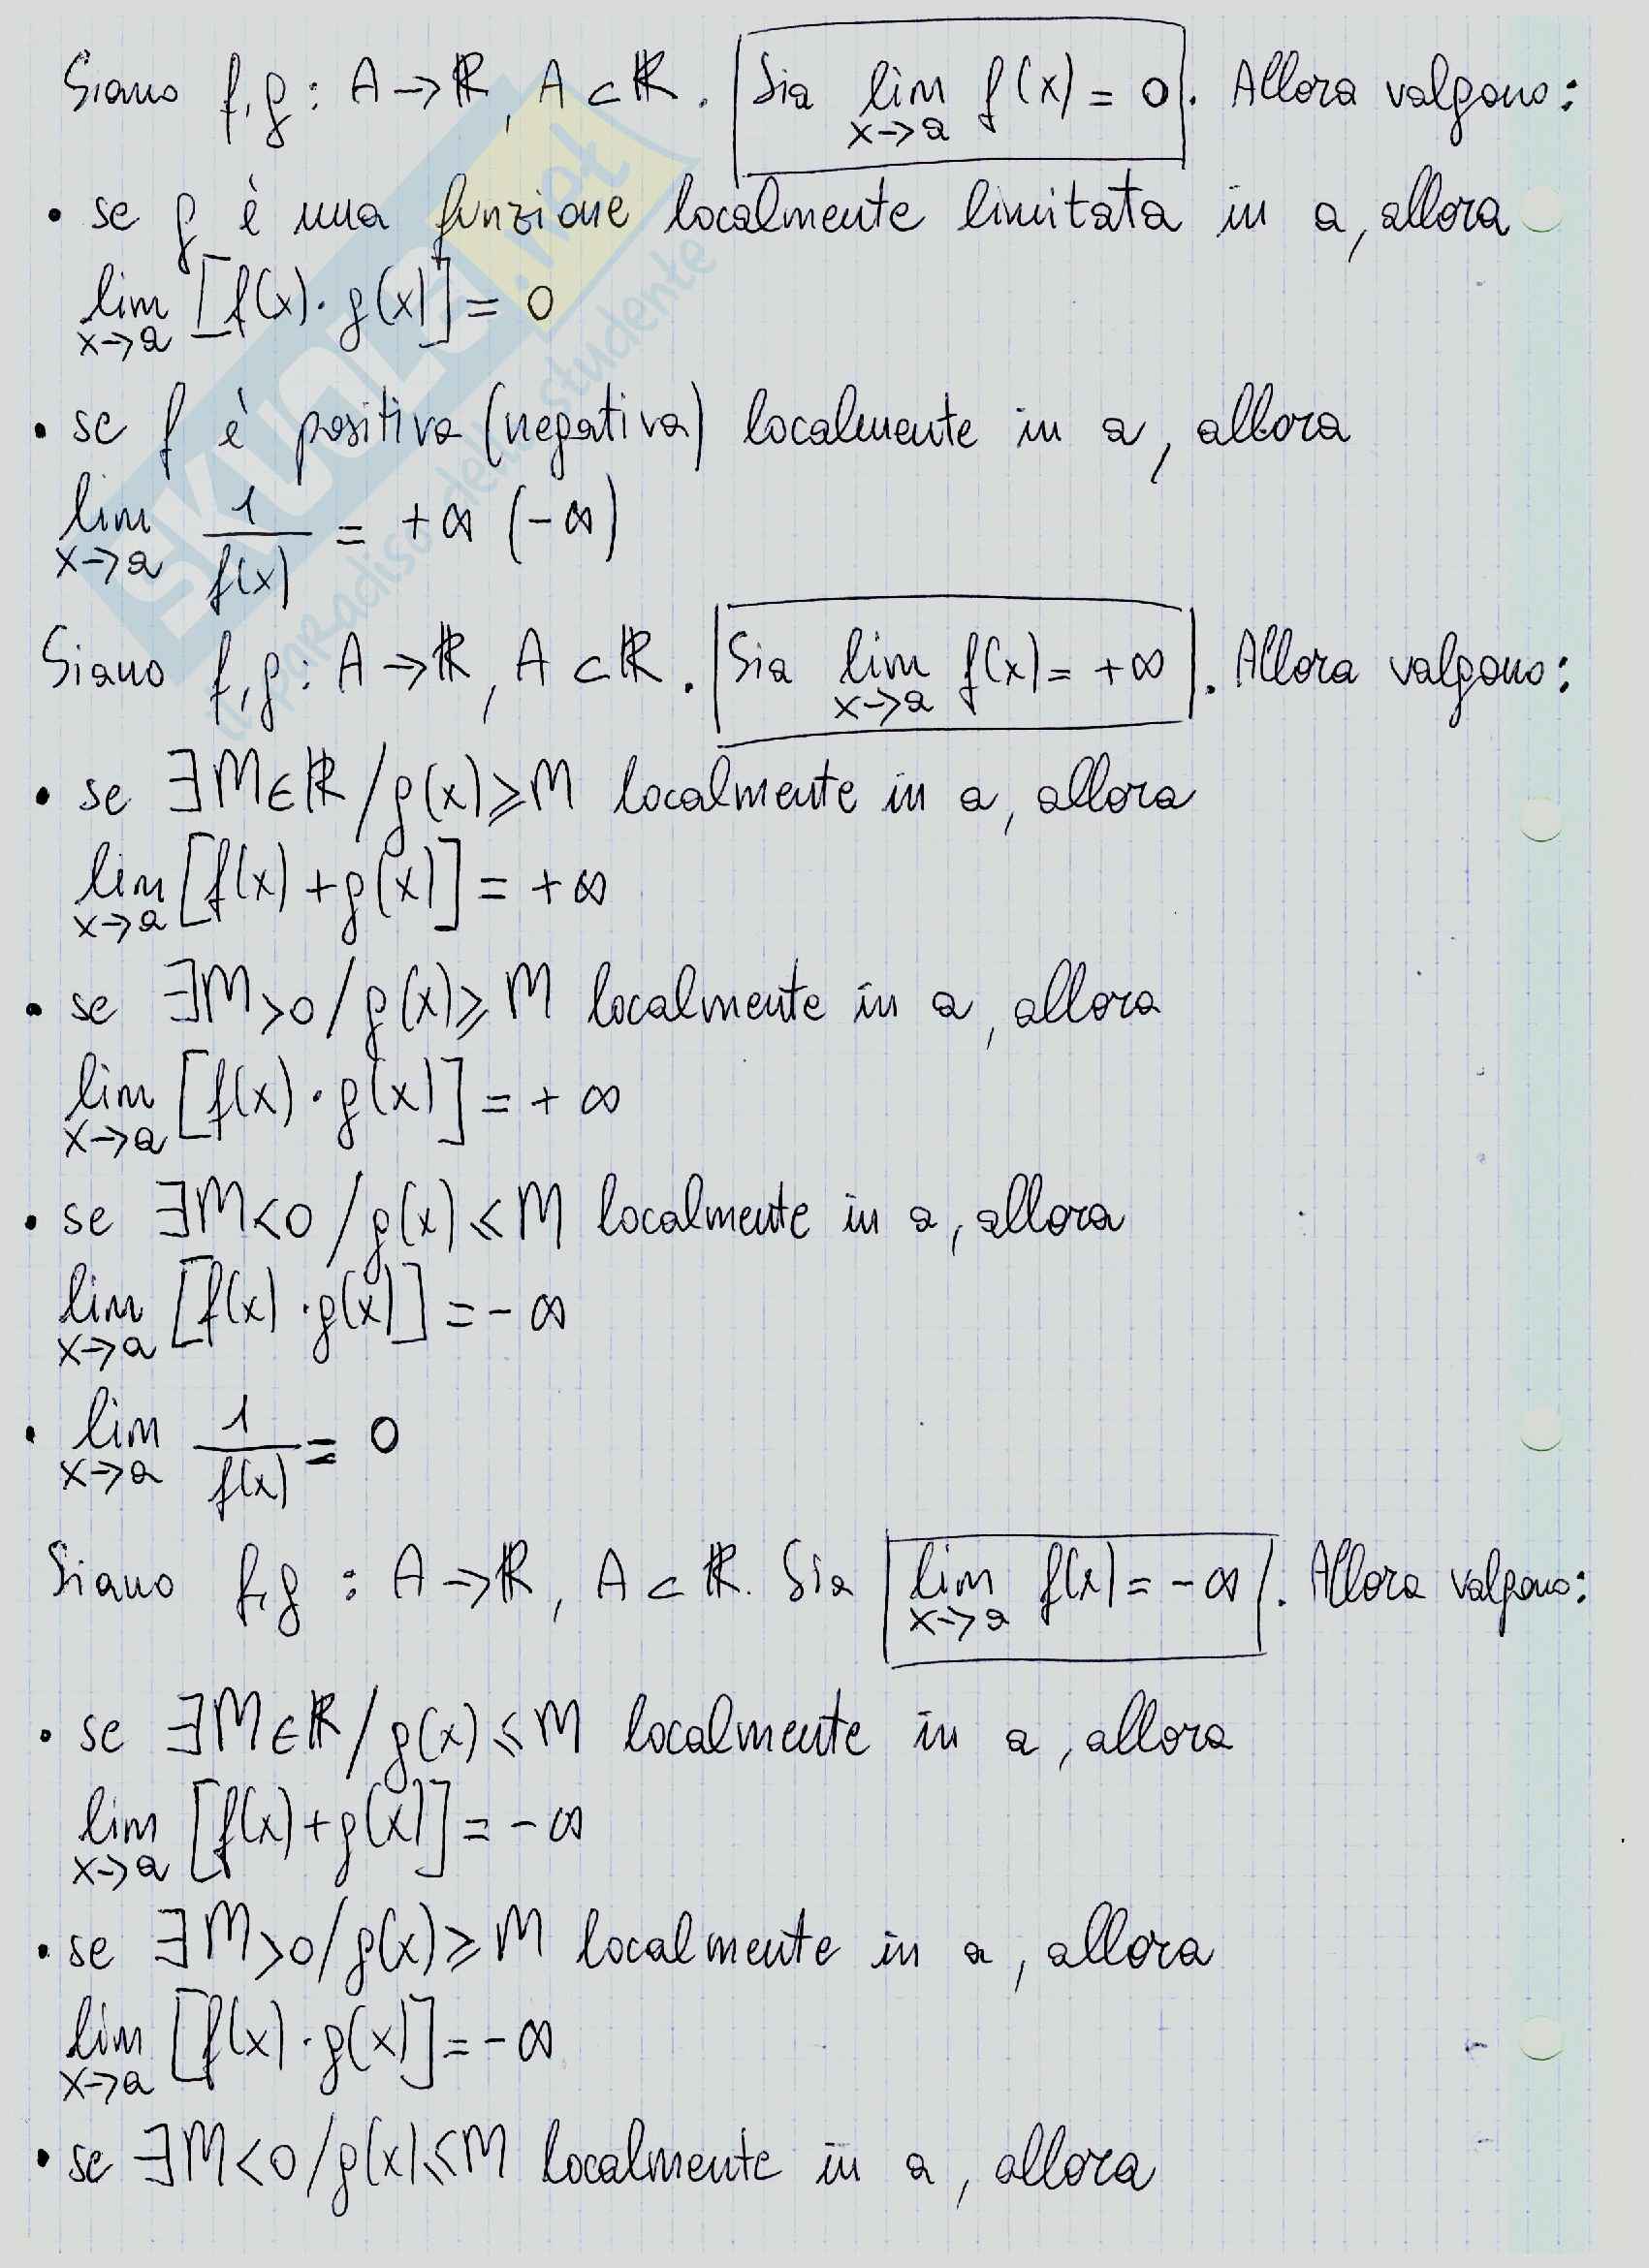 Siano f,g : A → ℝ, A ⊂ ℝ. Sia lim x→a f(x) = 0. Allora valgono:
• se g è una funzione localmente limitata in a, allora
lim x→a [f(x)·g(x)] = 0
• se f è positiva (negativa) localmente in a, allora
lim x→a 1/f(x) = +∞ (-∞)
Siano f,g : A → ℝ, A ⊂ ℝ. Sia lim x→a f(x) = +∞. Allora valgono:
• se ∃M∈ℝ / g(x) ≥ M localmente in a, allora
lim x→a [f(x) + g(x)] = +∞
• se ∃M>0 / g(x) ≥ M localmente in a, allora
lim x→a [f(x)·g(x)] = +∞
• se ∃M<0 / g(x) ≤ M localmente in a, allora
lim x→a [f(x)·g(x)] = -∞
• lim x→a 1/f(x) = 0
Siano f,g : A → ℝ, A ⊂ ℝ. Sia lim x→a f(x) = -∞. Allora valgono:
• se ∃M∈ℝ / g(x) ≤ M localmente in a, allora
lim x→a [f(x) + g(x)] = -∞
• se ∃M>0 / g(x) ≥ M localmente in a, allora
lim x→a [f(x)·g(x)] = -∞
• se ∃M<0 / g(x) ≤ M localmente in a, allora
SKUOLA.net
il paradiso dello studente